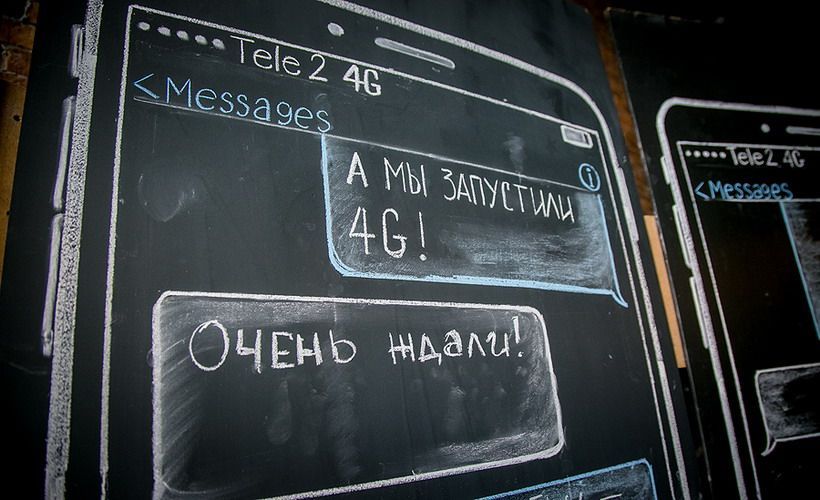 Tele2 4G
<Messages
А МЫ ЗАПУСТИЛИ
4G!
ОЧЕНЬ ждали!
Tele2 4G
<Messages